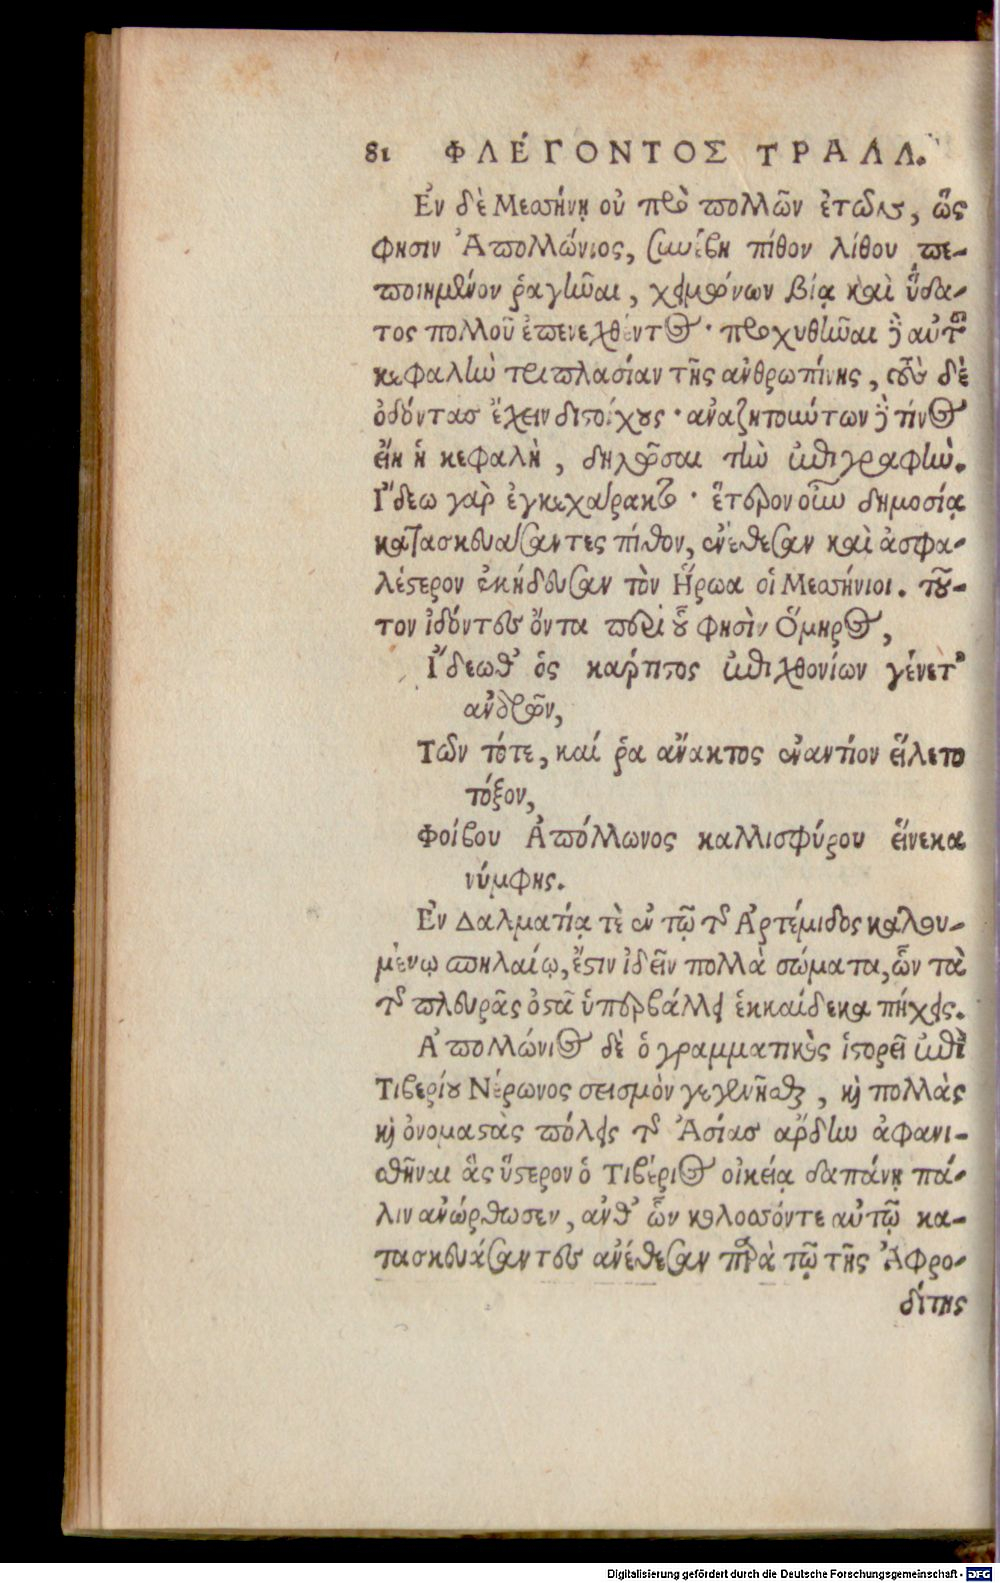 81 ΦΛΕΓΟΝΤΟΣ ΤΡΑΛΛ.
Ἐν δὲ Μεσσήνῃ οὐ πρὸ πολλῶν ἐτῶν, ὥς
φησιν Ἀπολλώνιος, συνέβη πίθον λίθου πε-
ποιημένον ῥαγῆναι, χειμώνων βίᾳ καὶ ὕδα-
τος πολλοῦ ἐπενελθόντος· προχυθῆναι δὲ αὐτοῦ
κεφαλὴν τριπλασίαν τῆς ἀνθρωπίνης, τοὺς δὲ
ὀδόντασ ἔχειν διστοίχους· ἀναζητούντων δὲ τίνος
εἴη ἡ κεφαλὴ, δηλῶσαι τὴν ἐπιγραφὴν.
Ἴδεω γὰρ ἐγκεχάρακτο· ἕτερον οὖν δημοσίᾳ
κατασκευάσαντες πίθον, ἐνέθεσαν καὶ ἀσφα-
λέστερον ἐκήδευσαν τὸν Ἥρωα οἱ Μεσσήνιοι. τοῦ-
τον ἰδόντες ὄντα περὶ οὗ φησὶν Ὅμηρος,
Ἴδεωθ' ὃς κάρτιστος ἐπιχθονίων γένετ'
ἀνδρῶν,
Τῶν τότε, καί ῥα ἄνακτος ἐναντίον εἵλετο
τόξον,
Φοίβου Ἀπόλλωνος καλλισφύρου εἵνεκα
νύμφης.
Ἐν Δαλματίᾳ τὲ ἐν τῷ τῆς Ἀρτέμιδος καλου-
μένῳ σπηλαίῳ, ἔστιν ἰδεῖν πολλὰ σώματα, ὧν τὰ
τῆς πλευρᾶς ὀστᾶ ὑπερβάλλει ἑκκαίδεκα πήχεις.
Ἀπολλώνιος δὲ ὁ γραμματικὸς ἱστορεῖ ἐπὶ
Τιβερίου Νέρωνος σεισμὸν γεγενῆσθαι, καὶ πολλὰς
καὶ ὀνομαστὰς πόλεις τῆς Ἀσίασ ἄρδην ἀφανι-
σθῆναι ἃς ὕστερον ὁ Τιβέριος οἰκείᾳ δαπάνῃ πά-
λιν ἀνώρθωσεν, ἀνθ' ὧν κολοσσόν τε αὐτῷ κα-
τασκευάσαντες ἀνέθεσαν παρὰ τῷ τῆς Ἀφρο-
δίτης
Digitalisierung gefördert durch die Deutsche Forschungsgemeinschaft - DFG